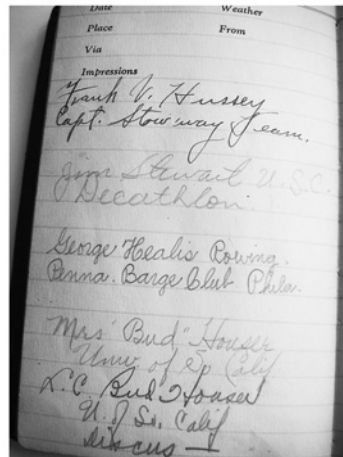 Date Weather
Place From
Via
Impressions
Frank V. Hussey
Capt. Stowaway Team.
Jim Stewart U.S.C.
Decathlon.
George Healis Rowing.
Penna. Barge Club Phila.
Mrs "Bud" Houser
Univ of So Calif
L.C. Bud Houser
U. of So. Calif
Discus —